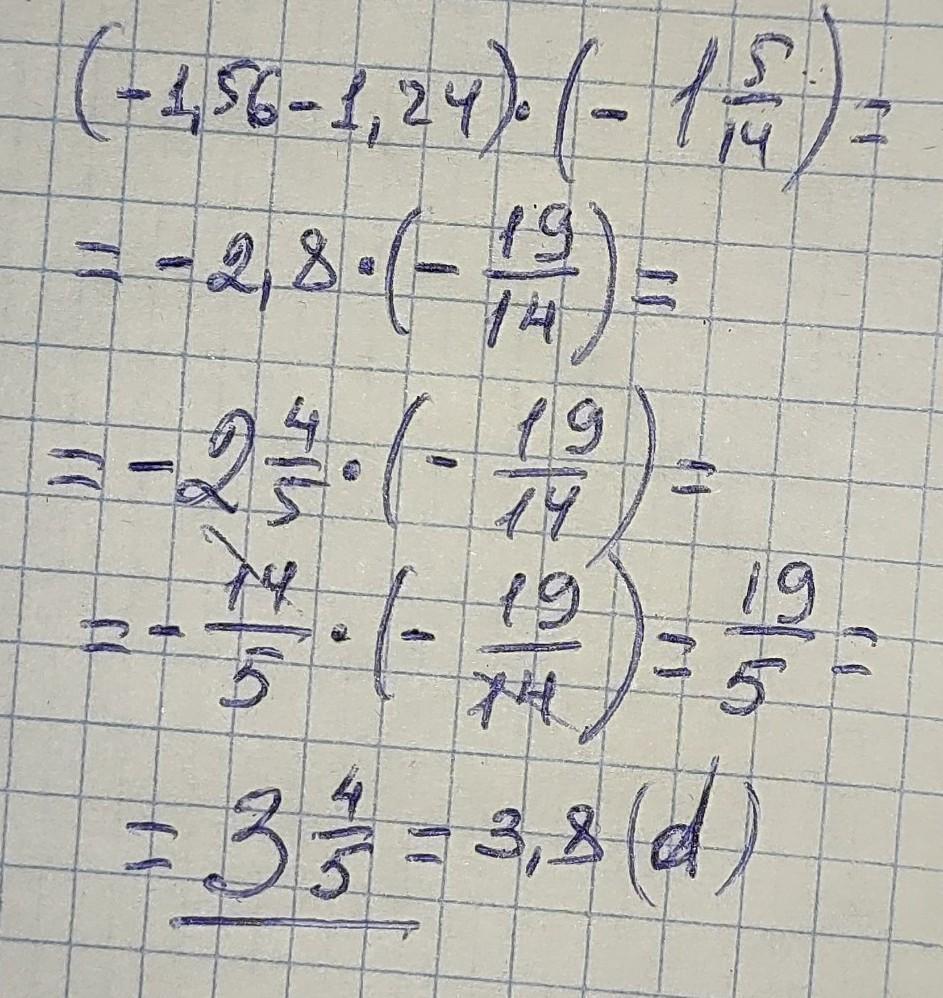 (-1,56-1,24)·(-1 5/14)=
=-2,8·(-19/14)=
=-2 4/5·(-19/14)=
=-14/5·(-19/14)=19/5=
=3 4/5=3,8(d)